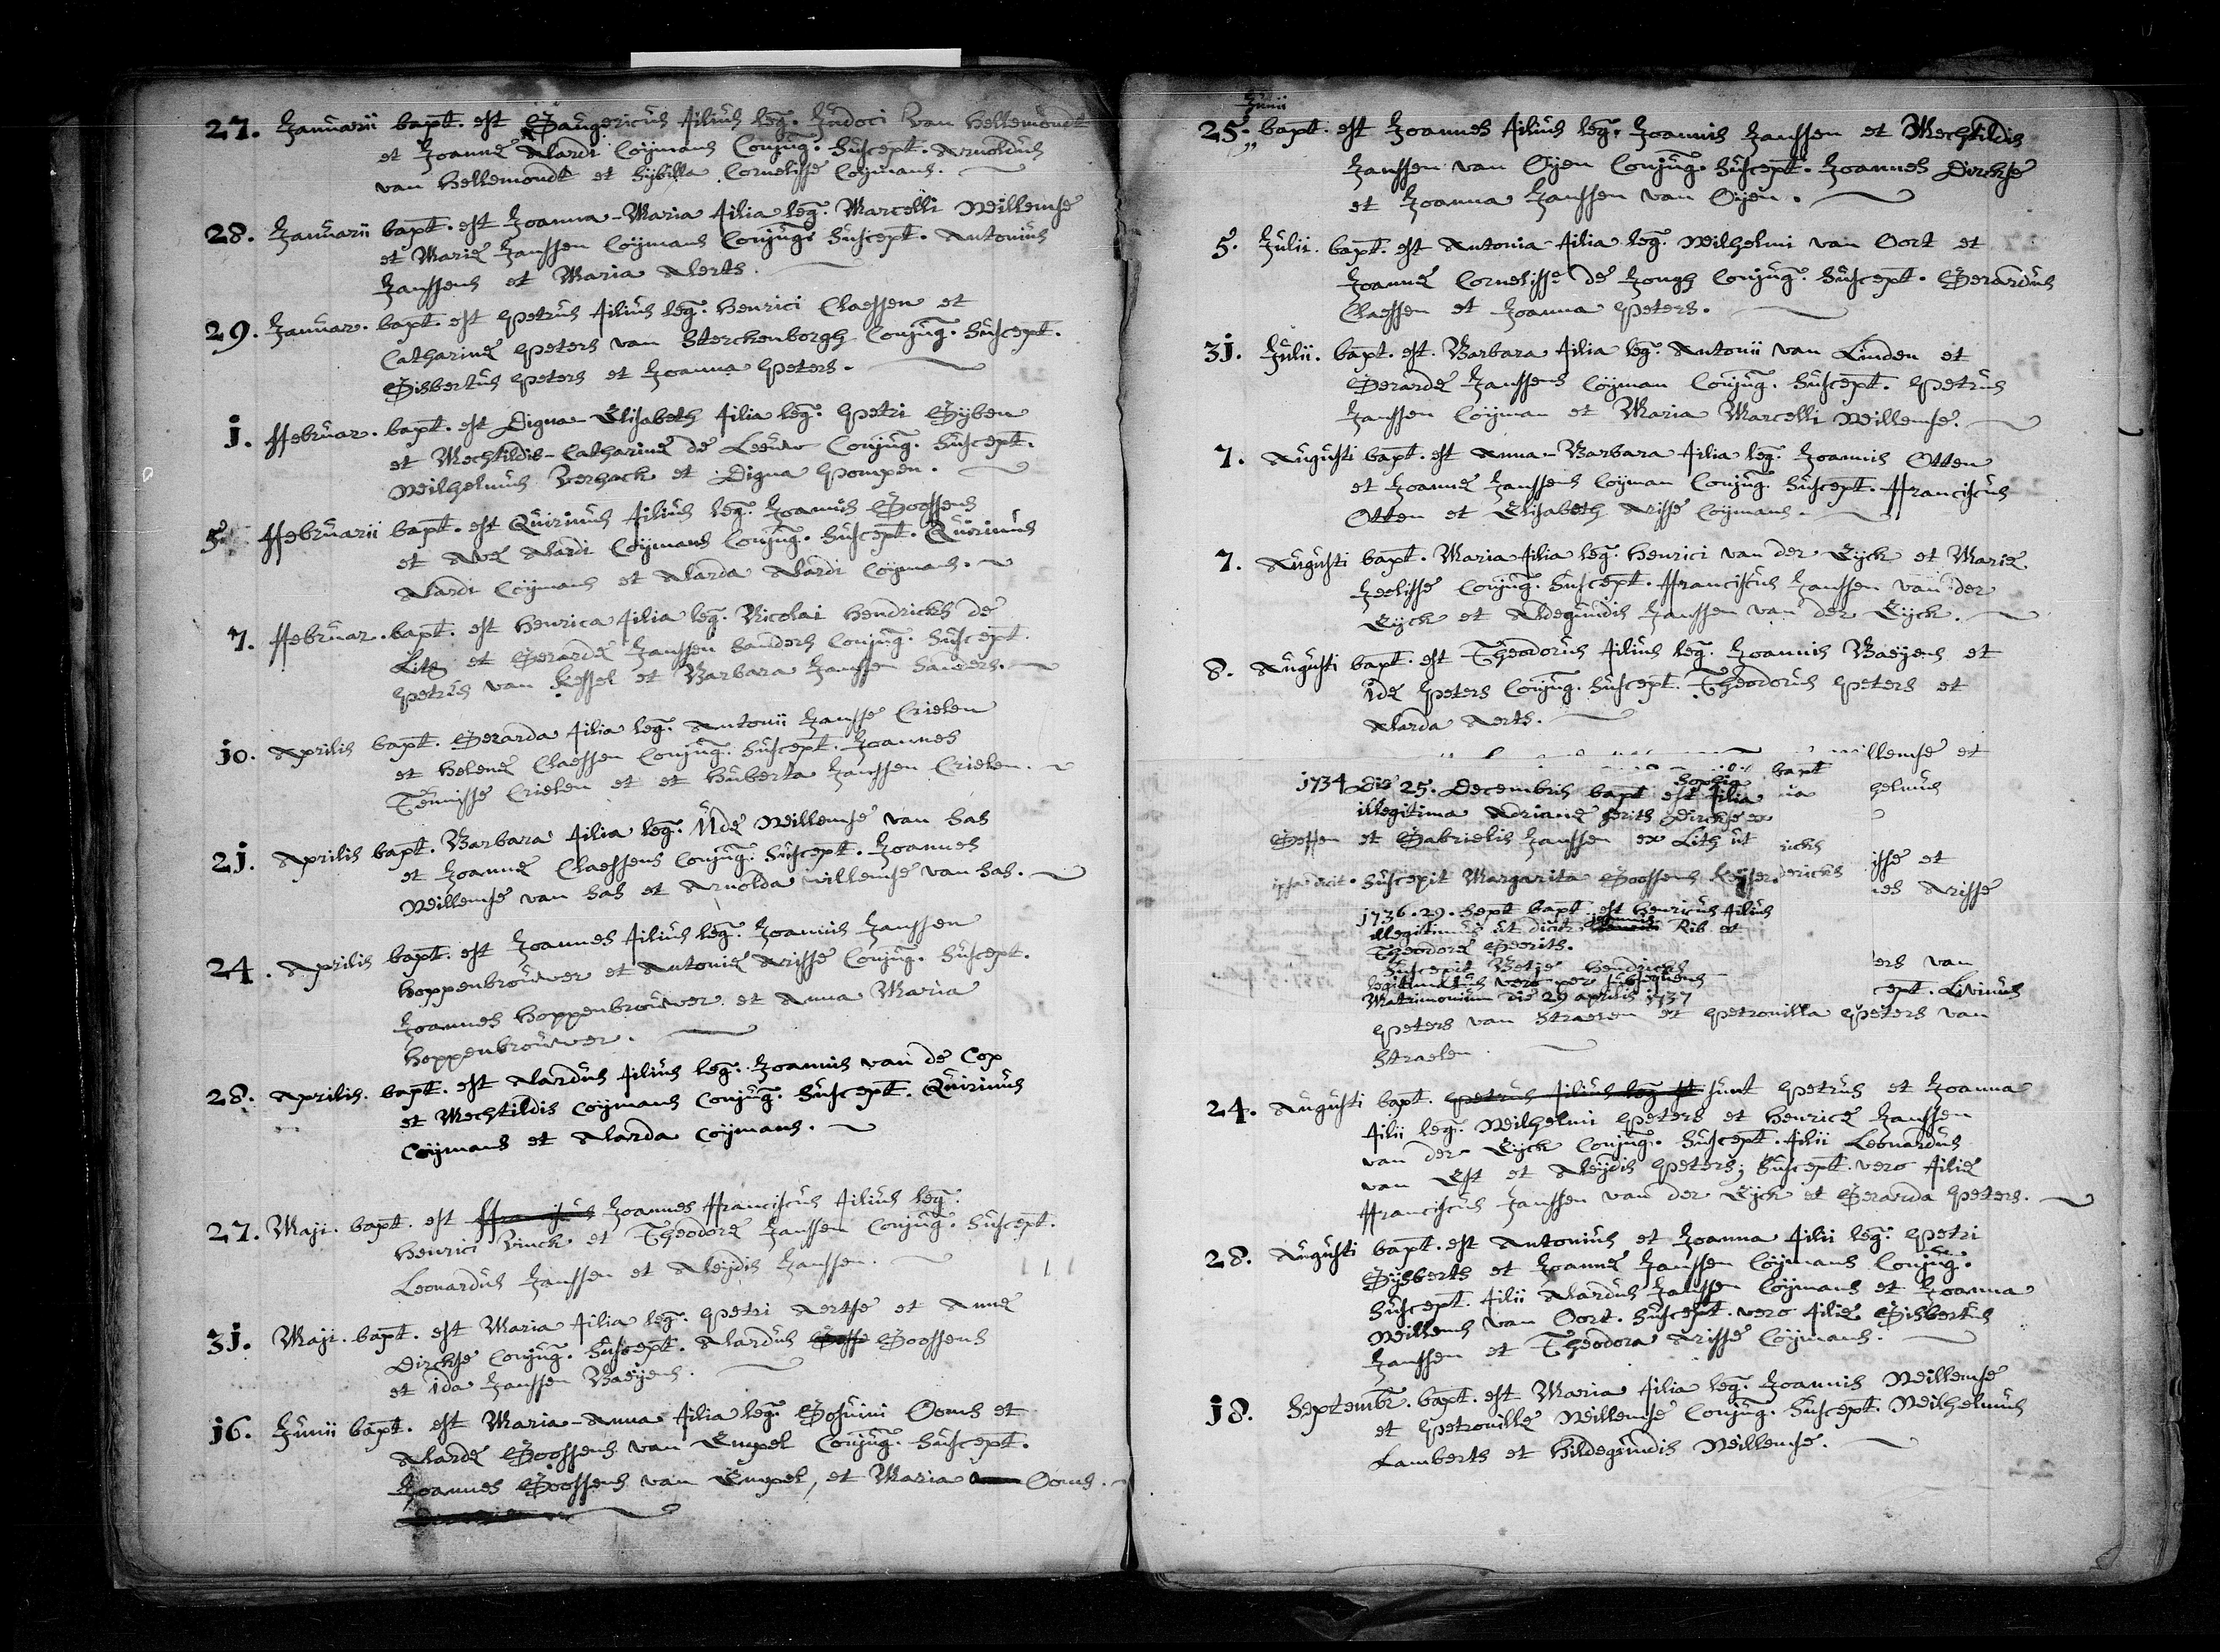 27. Januarii bapt. est Gaugericus filius leg. Judoci van Hellemondt
et Joannæ Alardi Coÿmans Conjug. Suscept. Arnoldus
van Hellemondt et Sÿbilla Cornelisse Coÿmans.
28. Januarii bapt. est Joanna-Maria filia leg. Marcelli Willemse
et Mariæ Janssen Coÿmans Conjug. Suscept. Antonius
Janssens et Maria Aerts.
29. Januar. bapt. est Petrus filius leg. Henrici Claessen et
Catharinæ Peters van Sterckenborgh Conjug. Suscept.
Gisbertus Peters et Joanna Peters.
j. Februar. bapt. est Digna-Elisabeth filia leg. Petri Gÿben
et Mechtildis-Catharinæ de Leeuw Conjug. Suscept.
Wilhelmus Verhack et Digna Pompen.
5. Februarii bapt. est Quirinus filius leg. Joannis Goossens
et Avæ Alardi Coÿmans Conjug. Suscept. Quirinus
Alardi Coÿmans et Alarda Alardi Coÿmans.
7. Februar. bapt. est Henrica filia leg. Nicolai Hendricks de
Lith et Gerardæ Janssen Sanders Conjug. Suscept.
Petrus van Kessel et Barbara Janssen Sanders.
jo. Aprilis bapt. Gerarda filia leg. Antonii Jansse Crielen
et Helenæ Claessen Conjug. Suscept. Joannes
Teunisse Crielen et et Huberta Janssen Crielen.
2j. Aprilis bapt. Barbara filia leg. Udæ Willemse van Has
et Joannæ Claessens Conjug. Suscept. Joannes
Willemse van Has et Arnolda willemse van Has.
24. Aprilis bapt. est Joannes filius leg. Joannis Janssen
Hoppenbrouwer et Antoniæ Arisse Conjug. Suscept.
Joannes Hoppenbrouwer et Anna Maria
Hoppenbrouwer.
28. Aprilis. bapt. est Alardus filius leg. Joannis van de Cop
et Mechtildis Coÿmans Conjug. Suscept. Quirinus
Coÿmans et Alarda Coÿmans.
27. Maji. bapt. est Franciscus Joannes Franciscus filius leg.
Henrici Vinck et Theodoræ Janssen Conjug. Suscept.
Leonardus Janssen et Aleÿdis Janssen.
3j. Maji. bapt. est Maria filia leg. Petri Aertse et Annæ
Dirckse Conjug. Suscept. Alardus Goossens
et Ida Janssen Baeÿens.
j6. Junii bapt. est Maria-Anna filia leg. Gosuini Ooms et
Alardæ Goossens van Empel Conjug. Suscept.
Joannes Goossens van Empel, et Maria Ooms.
Junii
25. bapt. est Joannes filius leg. Joannis Janssen et Mechtildis
Janssen van Oÿen Conjug. Suscept. Joannes Dirckse
et Joanna Janssen van Oÿen.
5. Julii. bapt. est Antonia filia leg. Wilhelmi van Oort et
Joannæ Cornelisse de Jongh Conjug. Suscept. Gerardus
Claessen et Joanna Peters.
3j. Julii. bapt. est. Barbara filia leg. Antonii van Linden et
Gerardæ Janssens Coÿman Conjug. Suscept. Petrus
Janssen Coÿman et Maria Marcelli Willemse.
7. Augusti bapt. est Anna-Barbara filia leg. Joannis Otten
et Joannæ Janssens Coÿman Conjug. Suscept. Franciscus
Otten et Elisabeth Arisse Coÿmans.
7. Augusti bapt. Maria filia leg. Henrici van der Eÿck et Mariæ
Jeelisse Conjug. Suscept. Franciscus Janssen van der
Eÿck et Aldegundis Janssen van der Eÿck.
8. Augusti bapt. est Theodorus filius leg. Joannis Baeÿens et
Idæ Peters Conjug. Suscept. Theodorus Peters et
Alarda Aerts.
illemse et
bapt
helmus
1734 die 25. Decembris bapt est Sophia filia
illegitima Adrianæ Gerits Dirckse ex
Geffen et Gabrielis Janssen ex Lith ut
ipsa dicit. Suscepit Margarita Goossens Keÿser.
ricks
isse et
dericks
nes Arisse
1736. 29. Sept bapt. est Henricus filius
illegitimus ut dicitur Joannis Rib et
Theodoræ Geerits.
Suscepit Betje Hendricks
legitimatus vero per subsequens
Matrimonium die 29 aprilis 1737
ers van
cept. Livinus
Peters van Straelen et Petronilla Peters van
Straelen.
24. Augusti bapt. Petrus filius leg sunt Petrus et Joanna
filii leg. Wilhelmi Peters et Henricæ Janssen
van der Eÿck Conjug. Suscept. filii Leonardus
van Est et Aleÿdis Peters; Suscept. vero filiæ
Franciscus Janssen van der Eÿck et Gerarda Peters.
28. Augusti bapt. est Antonius et Joanna filii leg. Petri
Gÿsberts et Joannæ Janssen Coÿmans Conjug.
Suscept. filii Alardus Janssen Coÿmans et Joanna
Willems van Oort. Suscept. vero filiæ Gisbertus
Janssen et Theodora Arisse Coÿmans.
j8. Septembr. bapt. est Maria filia leg. Joannis Willemse
et Petronillæ Willemse Conjug. Suscept. Wilhelmus
Lamberts et Hildegundis Willemse.